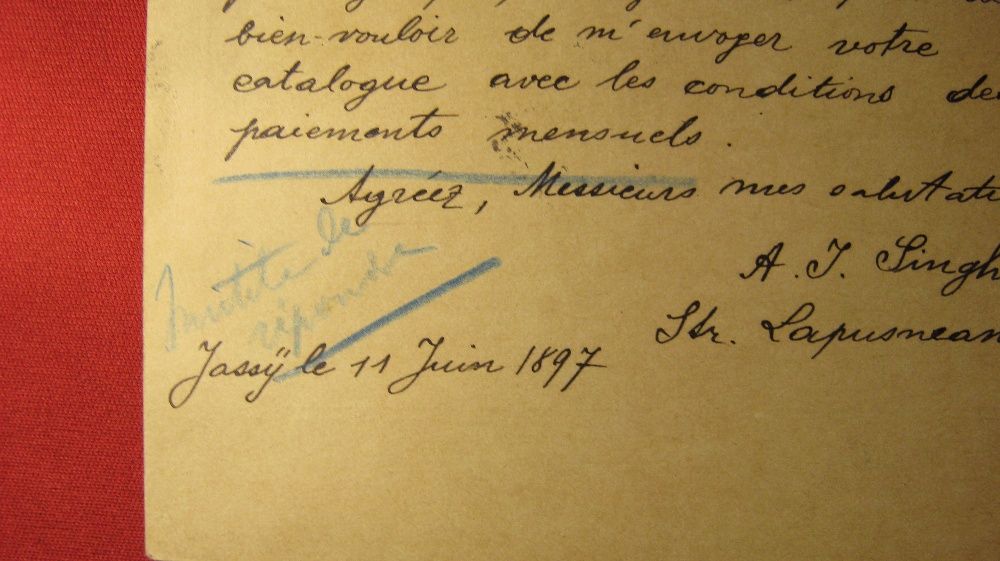 bien-vouloir de m'envoyer votre
catalogue avec les conditions de
paiements mensuels.
Agréez, Messieurs mes salutati
A. J. Singh
Str. Lapusnean
Inutile de
répondre
Jassÿ le 11 Juin 1897